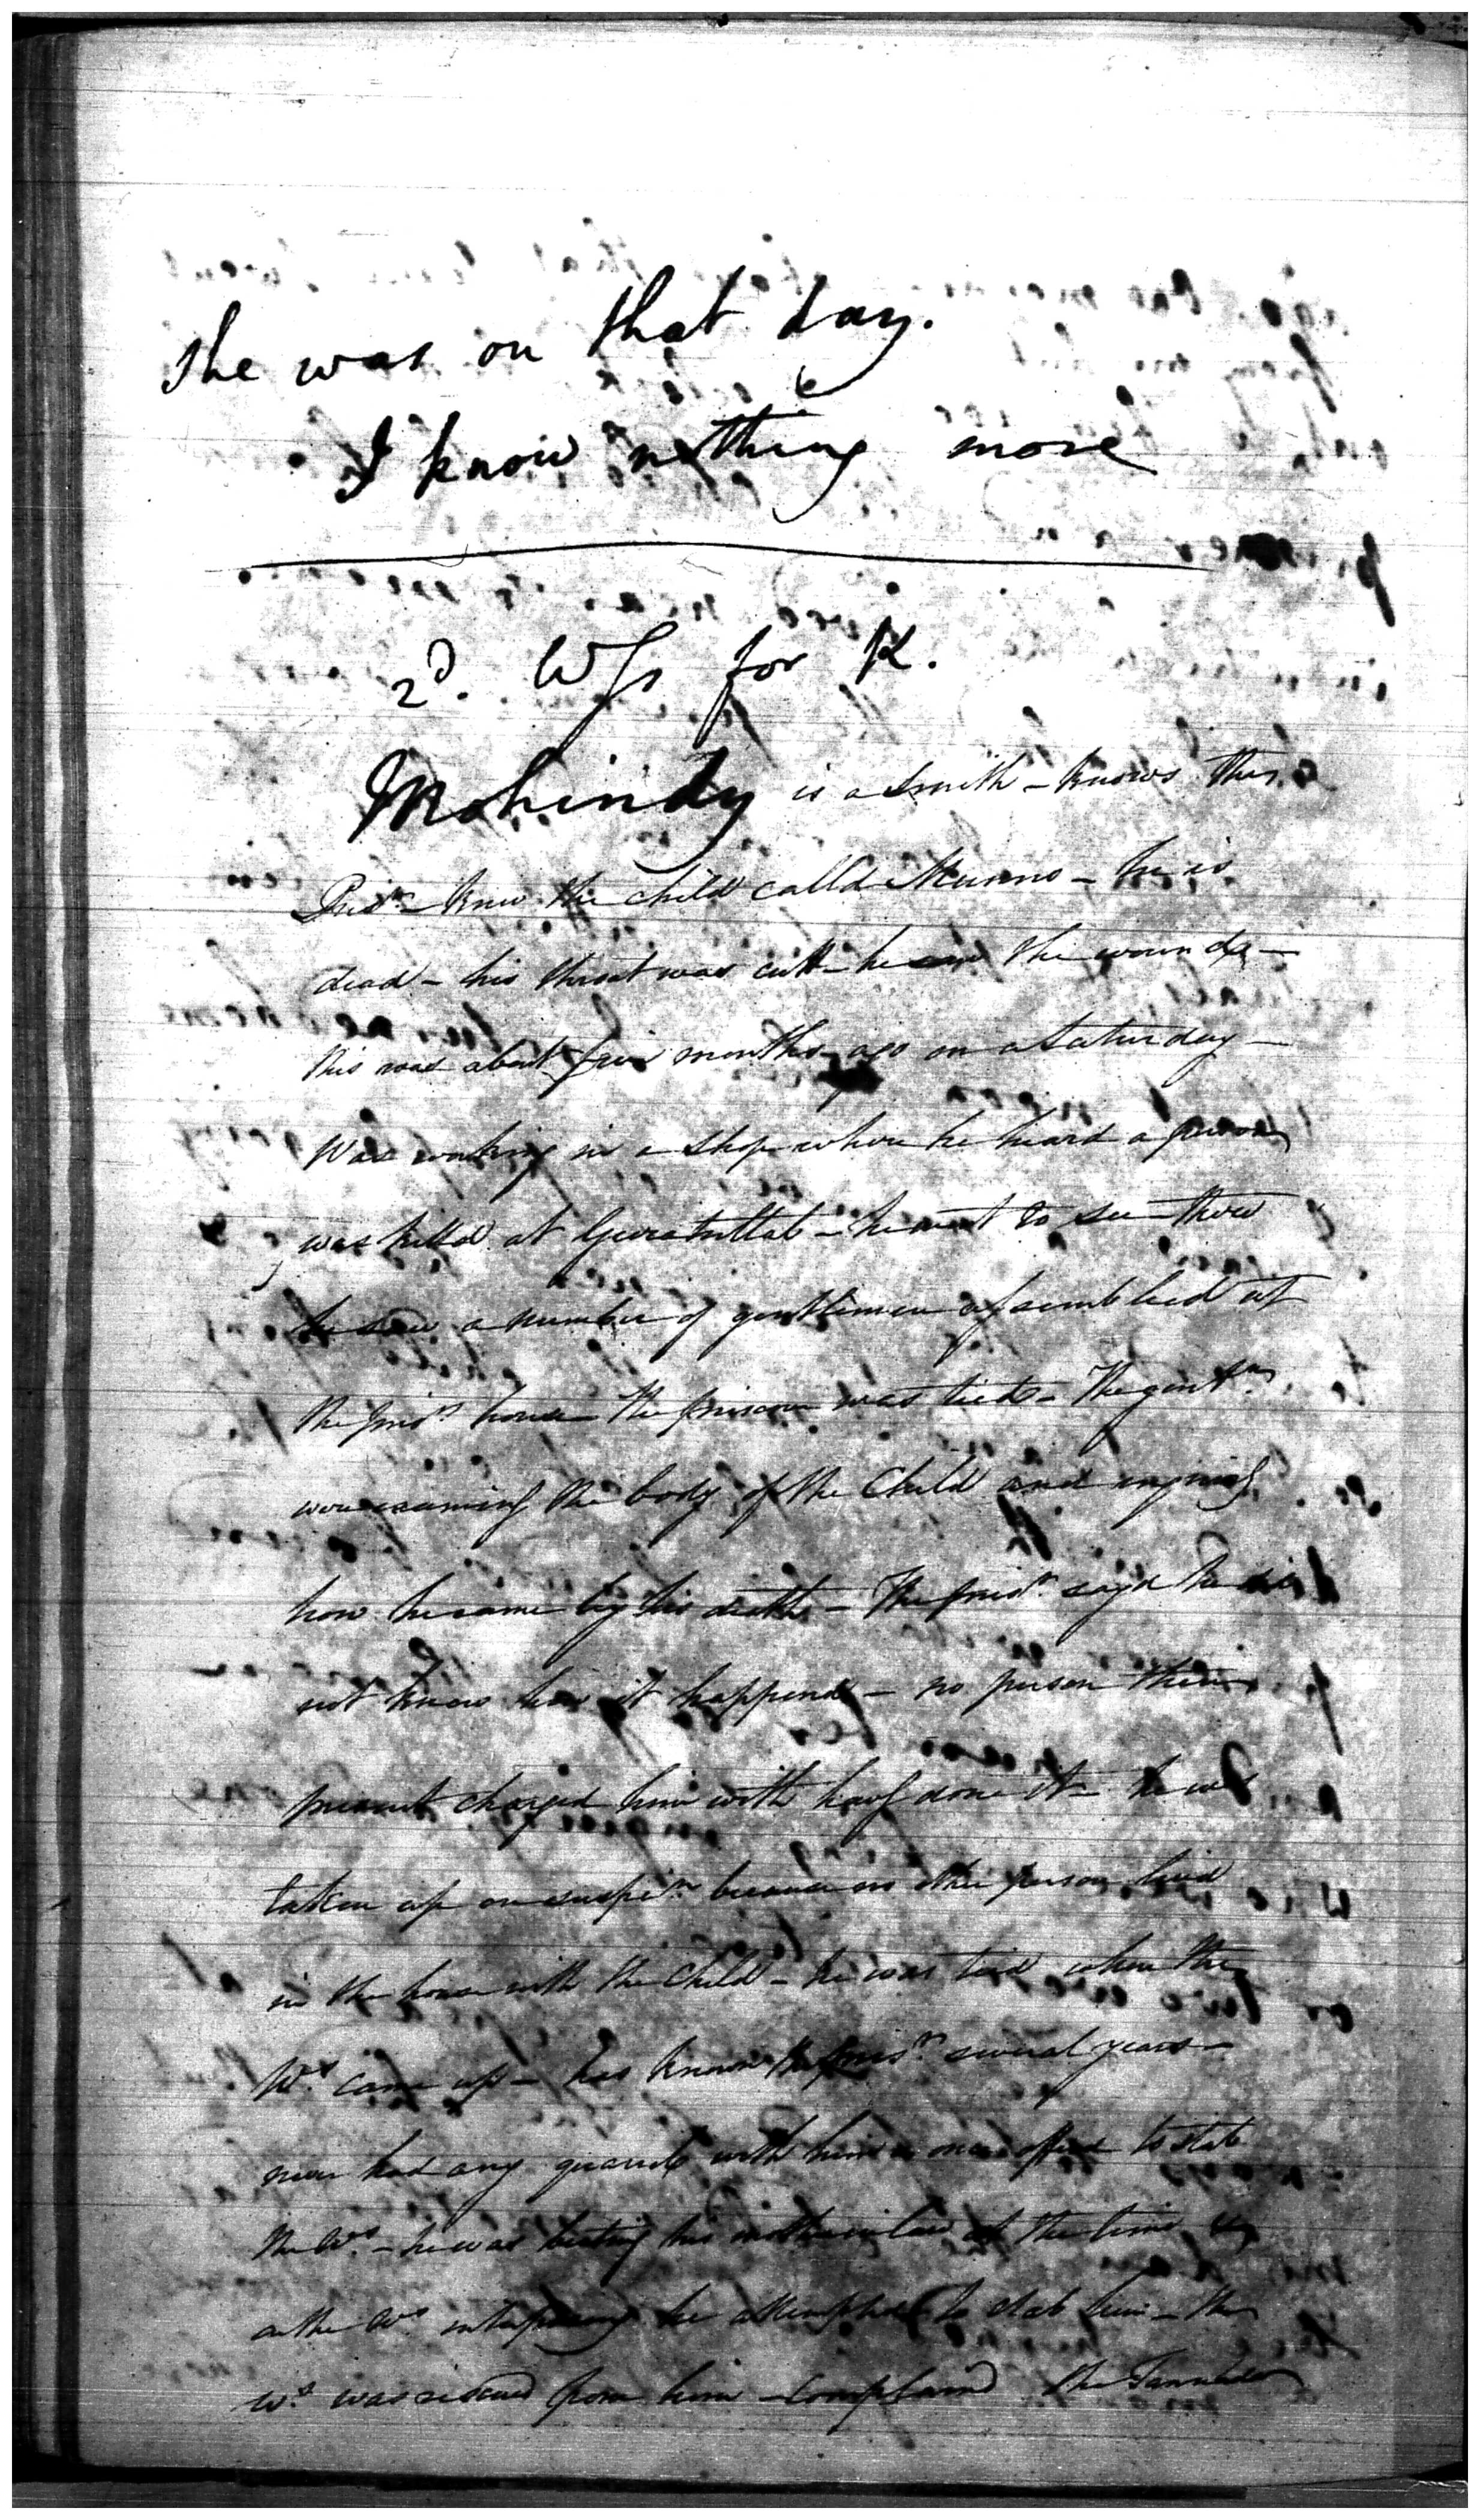 she was on that day.
I know nothing more
2d. Wss for K.
Mohindy is a Smith - knows the
Prisr. - knew the child calld Munno - he is
dead - his throat was cutt - he saw the wounds -
this was about four months ago on a Saturday -
Was working in a shop when he heard a person
was killd at - he went to see - there
he saw a number of gentlemen assembled at
the prisrs house - the prisoner was tied - The gentn
were examing the body of the Child and enquirg
how he came by his death - The prisr. sayd he did
not know how it happend - no person there
present charged him with havg done it - he was
taken up on suspicn because no other person lived
in the house with the Child - he was tied when the
Ws. came up - has known the prisr. several years -
never had any quarrel with him - once offerd to stab
the Ws. - he was beating his mother in law at the time &
on the Ws interposing he attempted to stab him - the
Ws. was rescued from him - complaind the